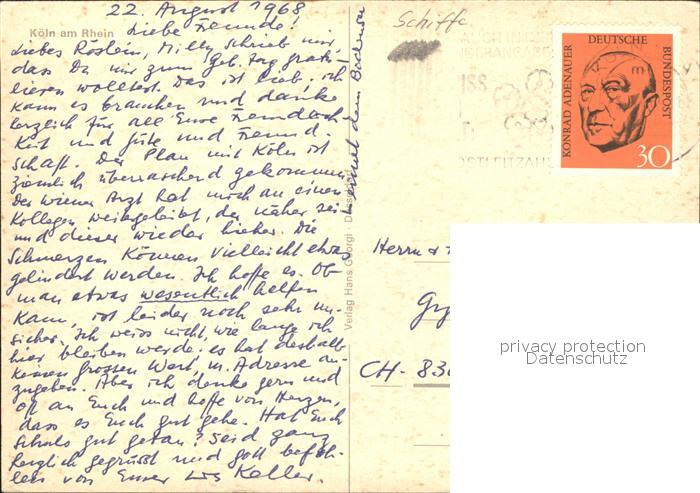 22. August 1968
Köln am Rhein
Liebe Freunde!
Liebes Röslein, Milly schrieb mir,
dass Du mir zum Geb. tag gratu-
lieren wolltest. Das ist lieb. Ich
kann es brauchen und danke
herzlich für all Eure Freundlich-
keit und Güte und Freund-
schaft. Der Plan mit Köln ist
ziemlich überraschend gekommen.
Der Wiener Arzt hat mich an einen
Kollegen weitergeleitet, der näher sei
und dieser wieder hieher. Die
Schmerzen können vielleicht etwas
gelindert werden. Ich hoffe es. Ob
man etwas wesentlich helfen
kann, ist leider noch sehr un-
sicher. Ich weiss nicht, wie lange ich
hier bleiben werde: es hat deshalb
keinen grossen Wert, m. Adresse an-
zugeben. Aber ich denke gern und
oft an Euch und hoffe von Herzen,
dass es Euch gut gehe. Hat Euch
Schuls gut getan? Seid ganz
herzlich gegrüsst und Gott befoh-
len von Eurer Keller.
dem Bodensee
Verlag Hans Georgi
Schiffe
OSTLEITZAH
KONRAD ADENAUER
DEUTSCHE
BUNDESPOST
30
Herrn &
CH- 83
privacy protection
Datenschutz